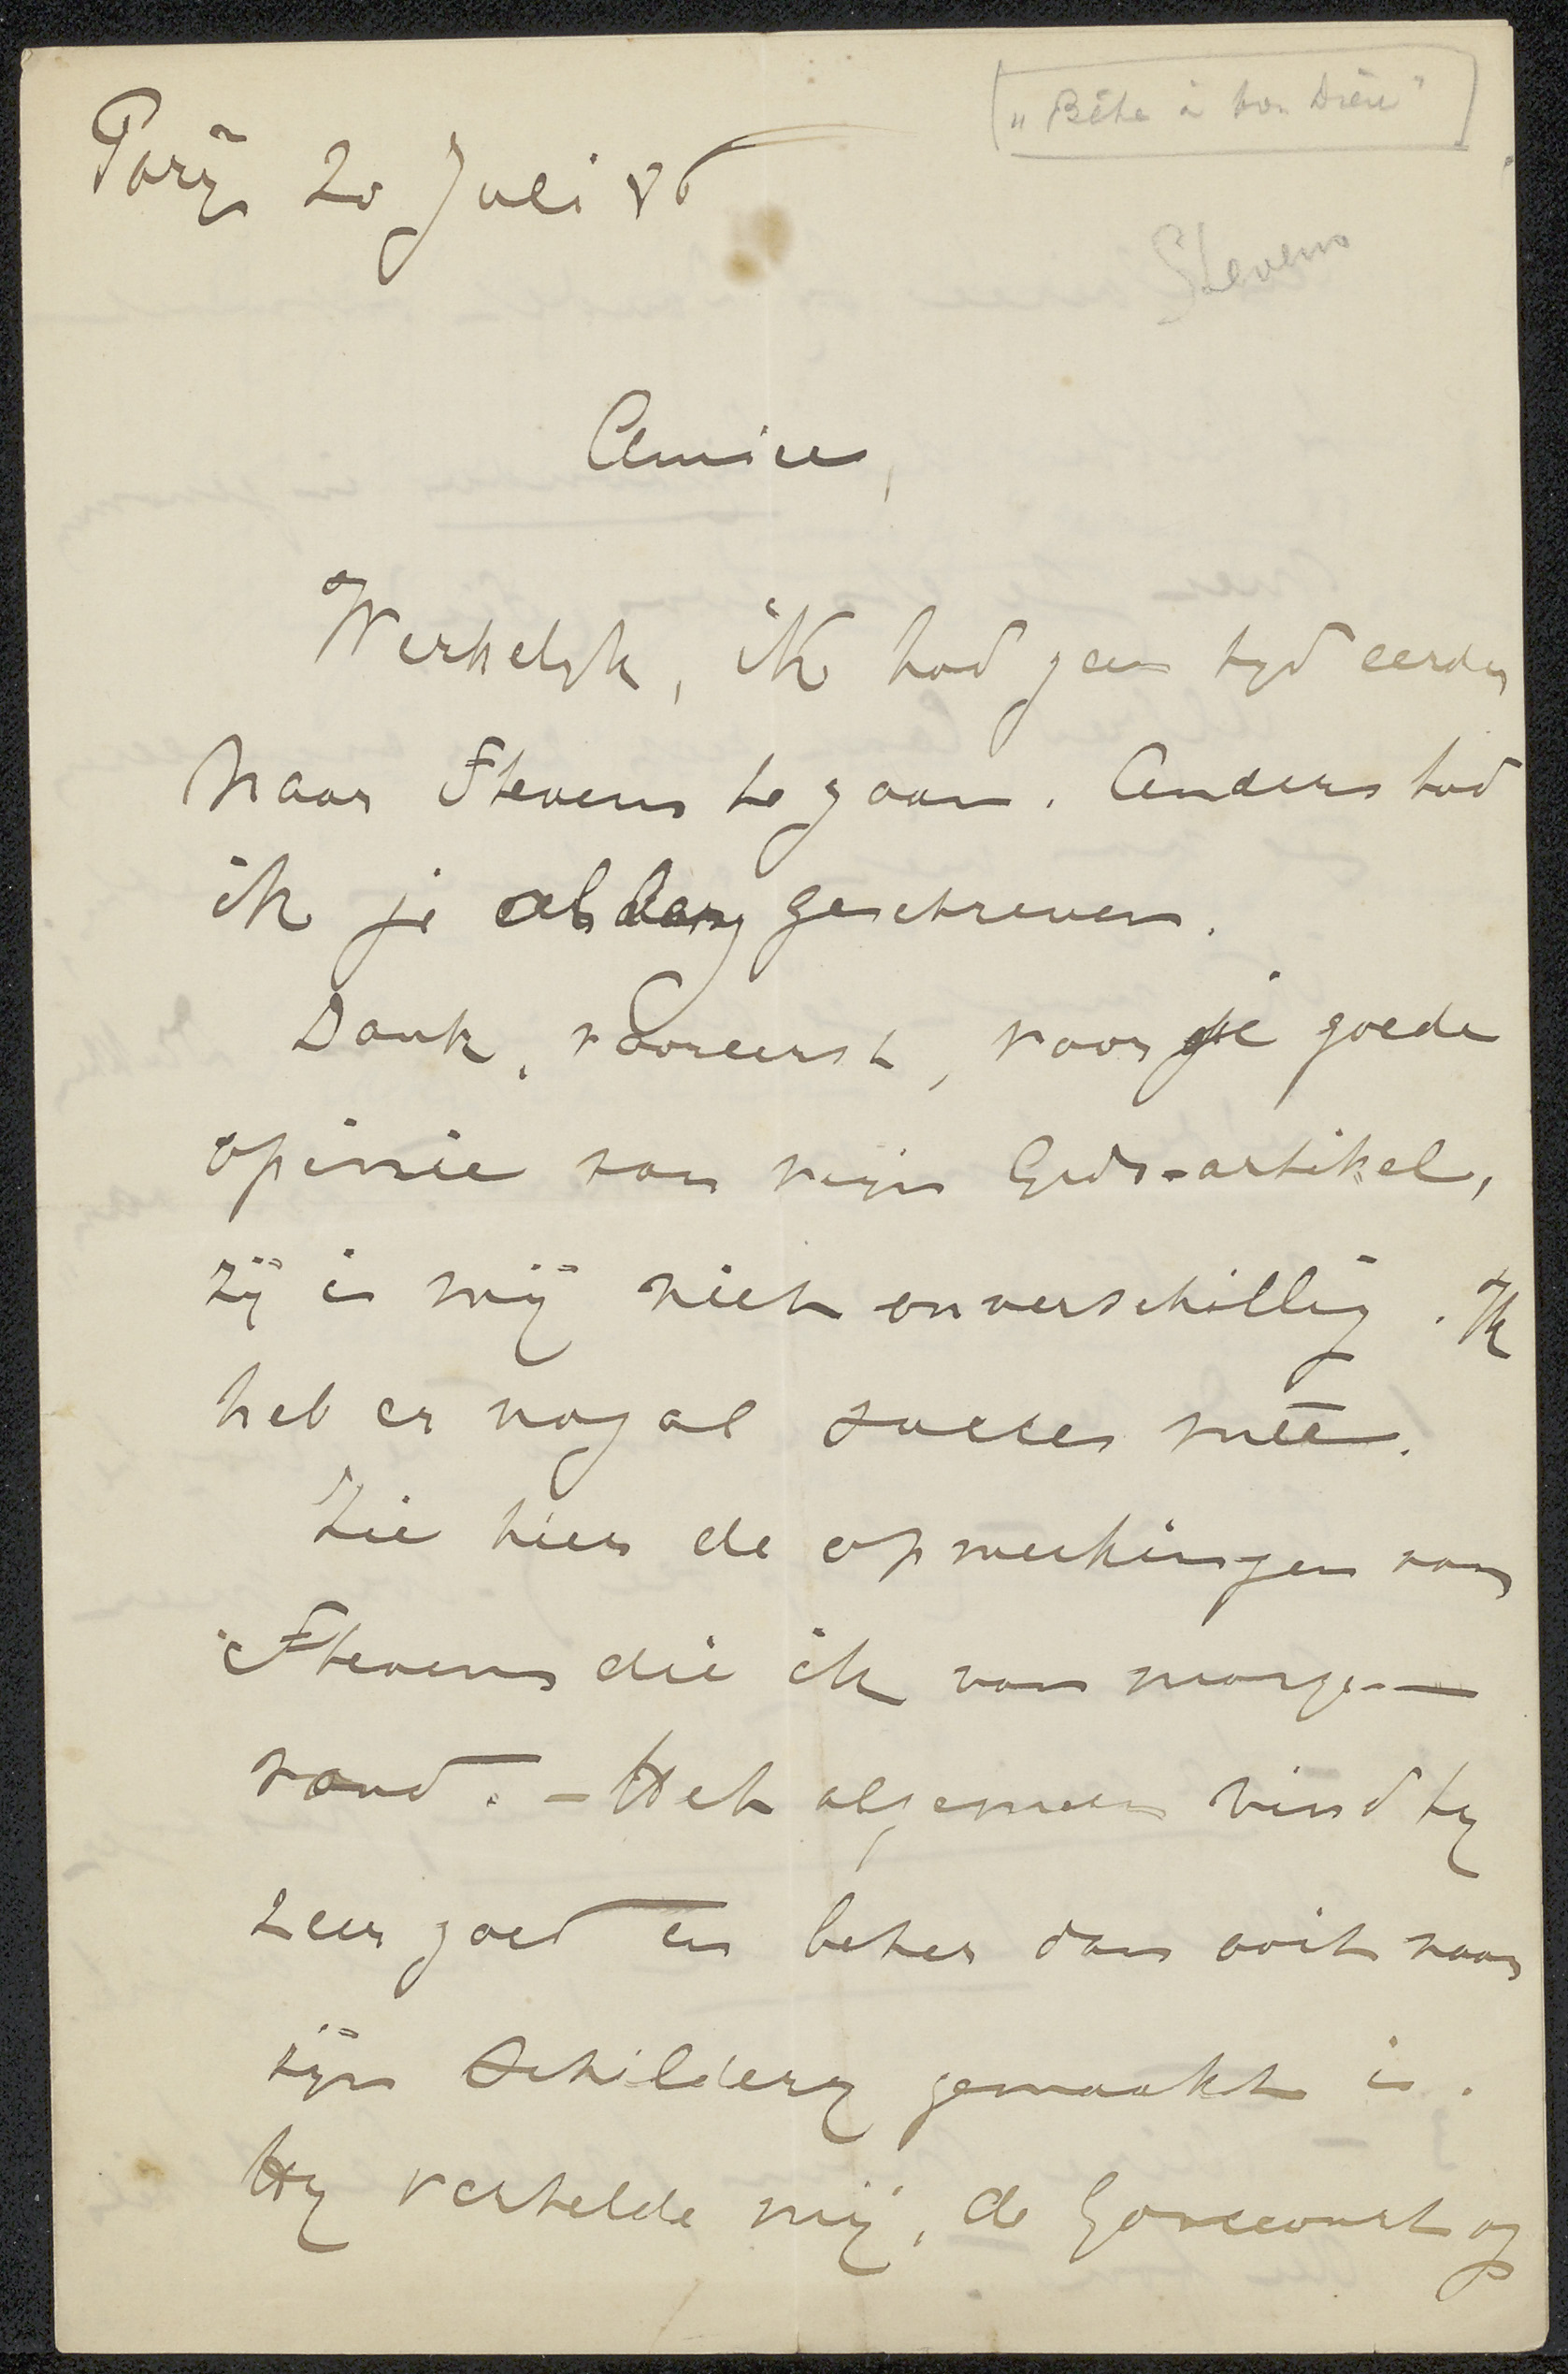 „Bête à bon Dieu"
Parijs 20 Juli 86
Stevens
Amice,
Werkelijk, ik had geen tijd eerder
naar Stevens te gaan. Anders had
ik je al lang geschreven.
Dank, vooreerst, voor je goede
opinie van mijn Gids-artikel,
zij is mij niet onverschillig. Ik
heb er nogal succes meê.
Zie hier de opmerkingen van
Stevens die ik van morgen
vond. – Het algemeen vind hij
zeer goed en beter dan ooit naar
zijn schilderij gemaakt is.
Hij vertelde mij, de Goncourt op